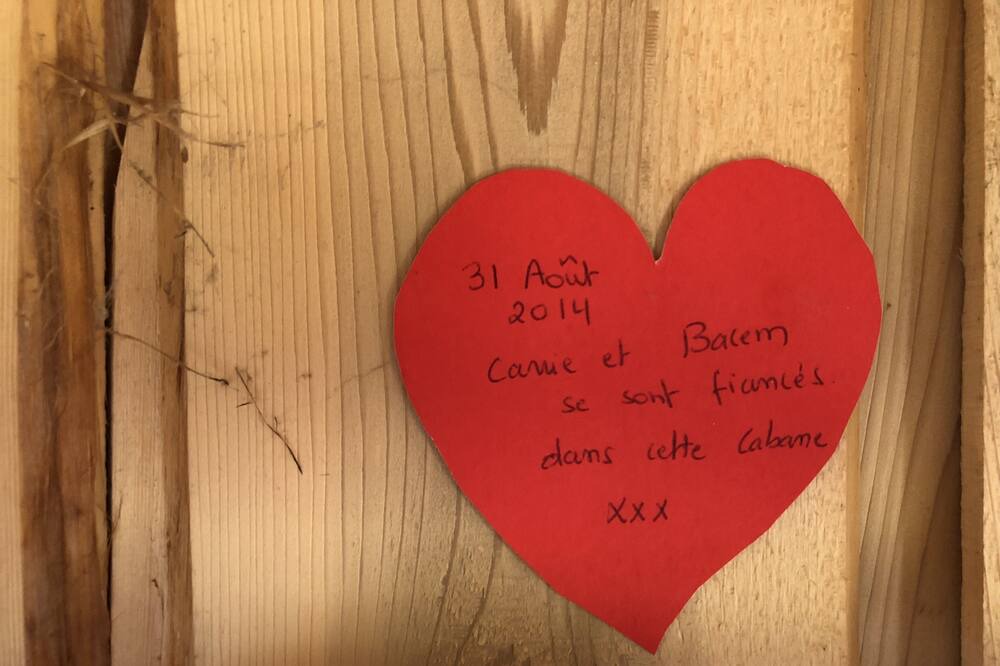 31 Août
2014
Carrie et Bacem
se sont fiancés.
dans cette Cabane
XXX